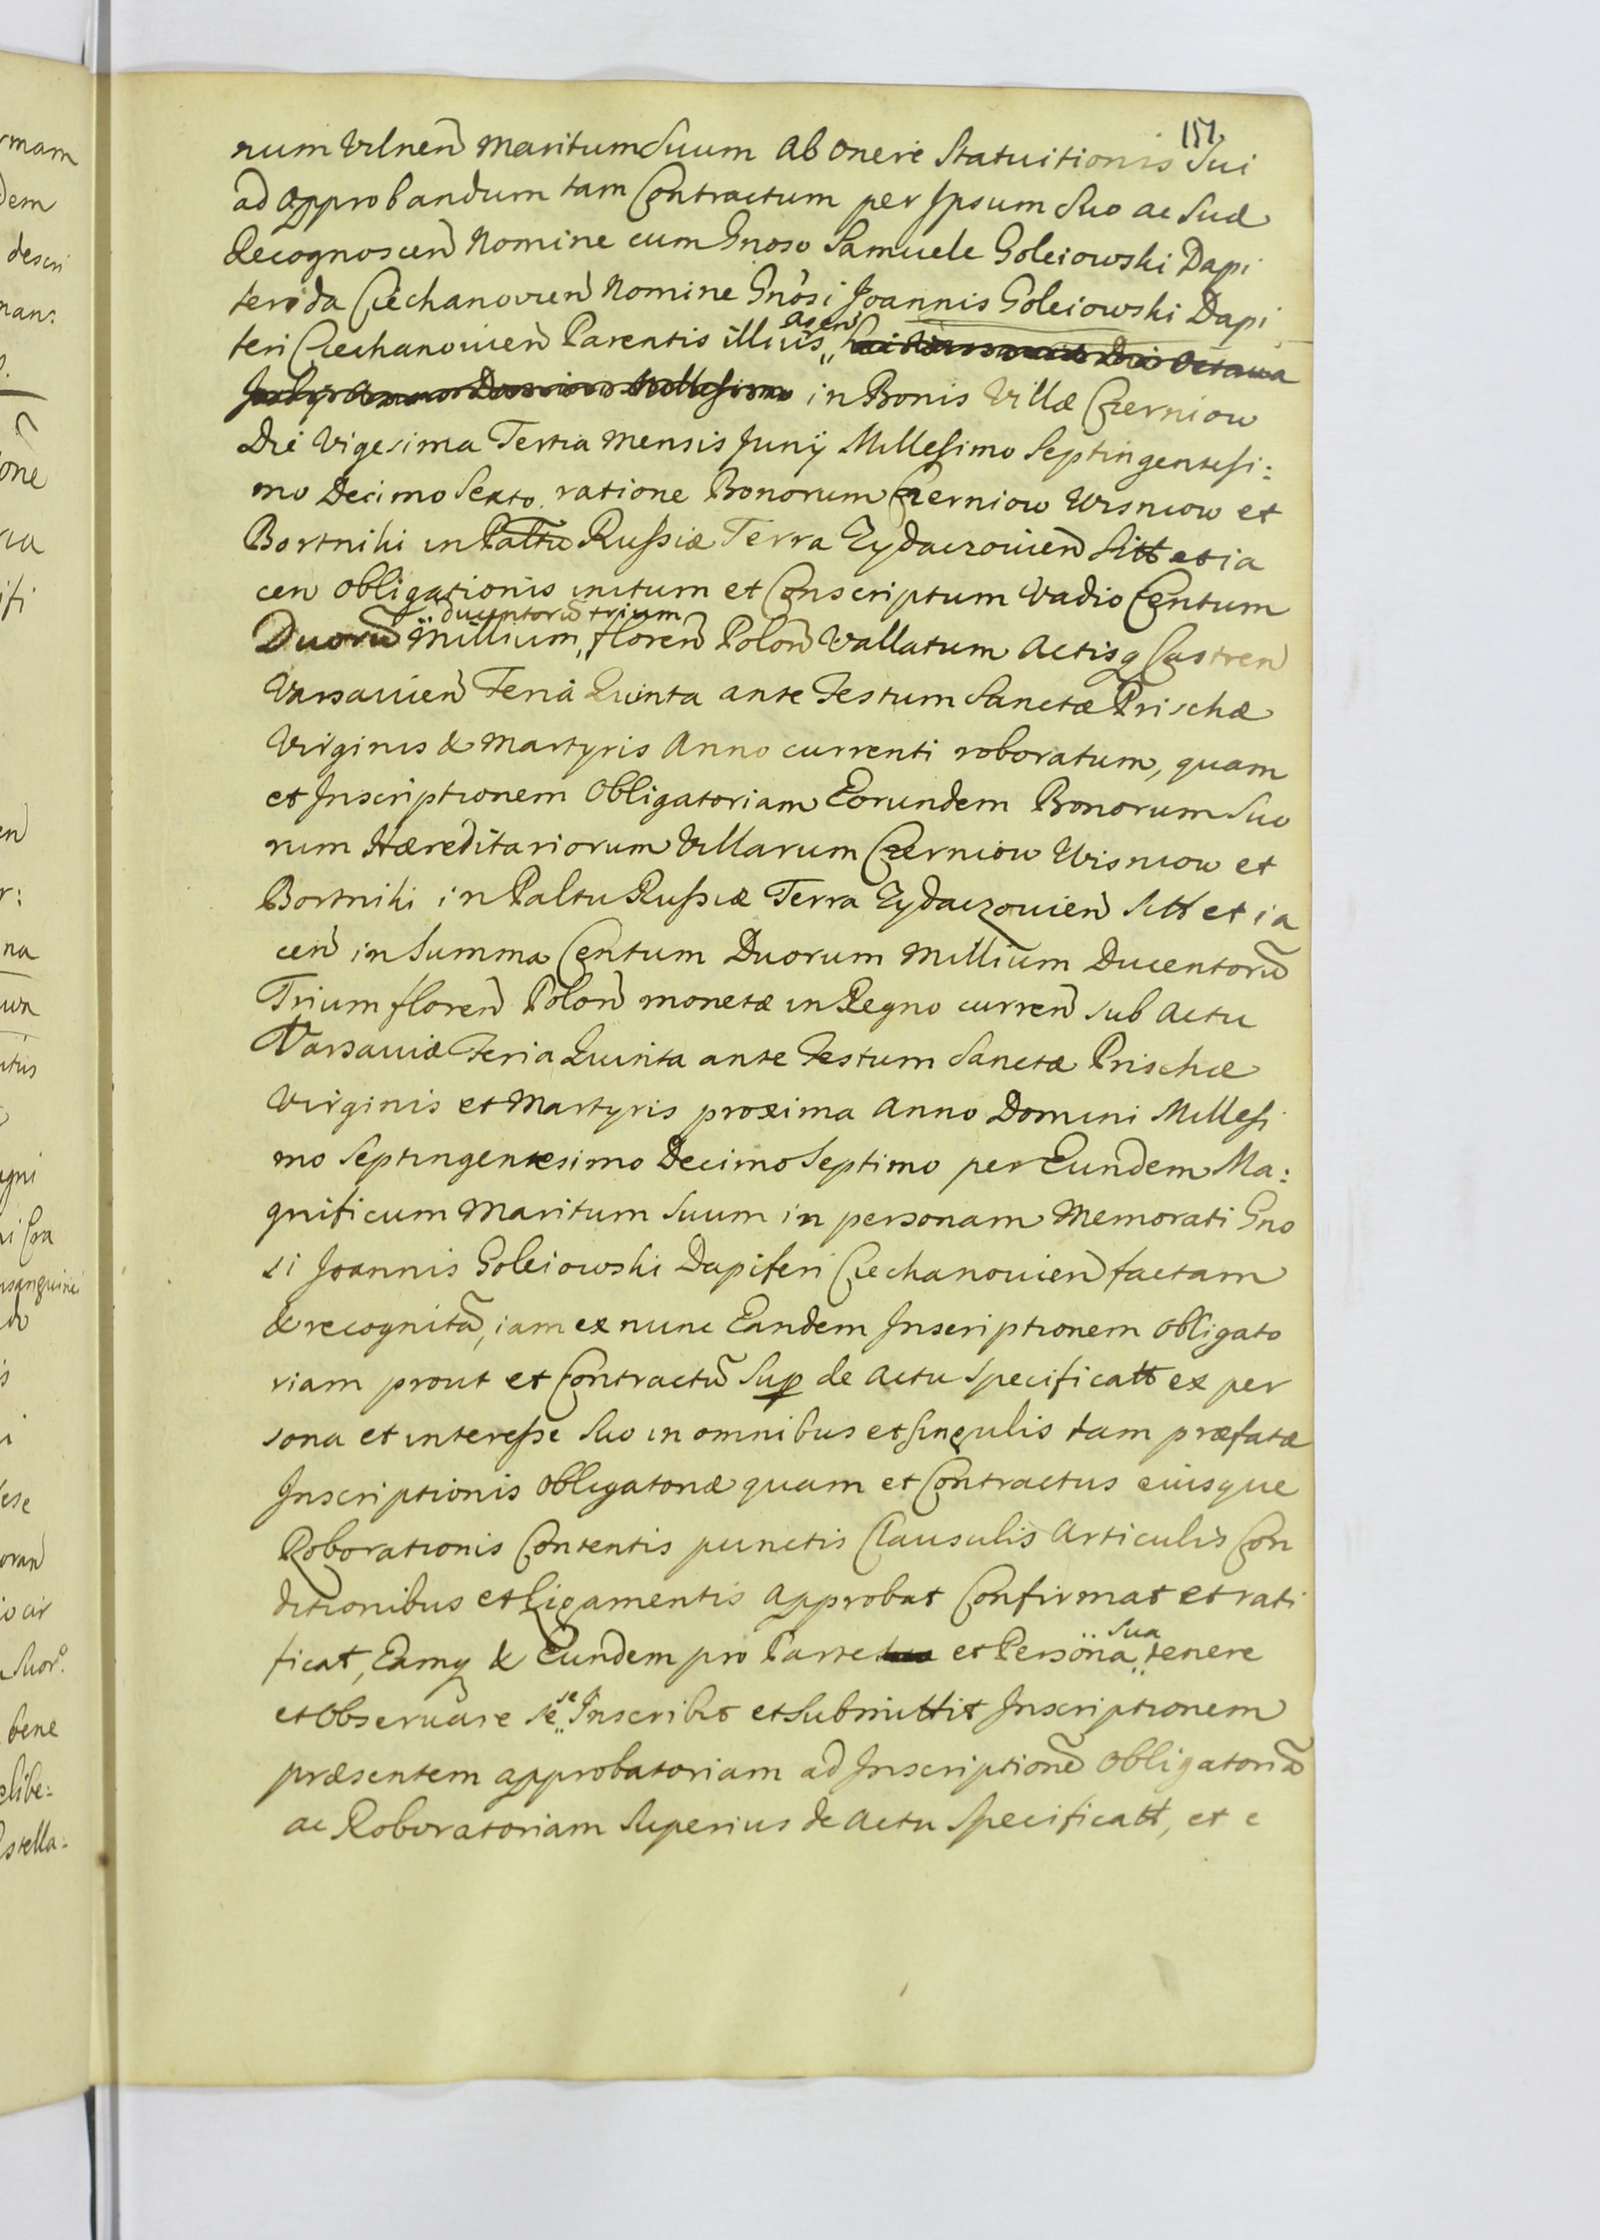 151
num Vilnen Maritum Suum ab onere Statuitionis Sui
ad approbandum tam Contractum per Ipsum Suo ac Suæ
Recognoscen Nomine cum Gnoso Samuele Goleiowski Dapi
ferida Ciechanovien Nomine Gnosi Joannis Goleiowski Dapi
feri Ciechanovien Parentis illius agen Die Octava
Anno Domini Millesimo in Bonis Villæ Czerniow
Die Vigesima Tertia Mensis Junij Millesimo Septingentesi:
mo Decimo Sexto ratione Bonorum Czerniow Wisniow et
Bortniki in Paltu Russiæ Terra Zydaczovien Sitt et ia
cen obligationis initum et Conscriptum Vadio Centum
ducentorũ trium
Duorũ Millium, floren Polon Vallatum Actisq Castren
Varsavien Feria Quinta ante Festum Sanctæ Priscæ
Virginis & Martyris Anno currenti roboratum, quam
et Inscriptionem Obligatoriam Eorundem Bonorum Suo
rum Hæreditariorum Villarum Czerniow Wisniow et
Bortniki in Paltu Russiæ Terra Zydaczovien Sitt et ia
cen in Summa Centum Duorum Millium Ducentorũ
Trium floren Polon monetæ in Regno curren sub Actu
Varsaviæ Feria Quinta ante Festum Sanctæ Prischæ
Virginis et Martyris proxima Anno Domini Millesi
mo Septingentesimo Decimo Septimo per Eundem Ma:
gnificum Maritum Suum in personam Memorati Gno
si Joannis Goleiowski Dapiferi Ciechanovien factam
& recognitã, iam ex nunc Eandem Inscriptionem obligato
riam prout et Contractũ Sup de actu specificatt ex per
sona et interesse Suo in omnibus et singulis tam præfatæ
Inscriptionis obligatoriæ quam et Contractus eiusque
Roborationis Contentis punctis Clausulis Articulis Con
ditionibus et Ligamentis approbat Confirmat et rati
ficat, Eamq & Eundem pro Parte et Persona Sua tenere
et observare se se Inscribit et Submittit Inscriptionem
præsentem approbatoriam ad Inscriptionẽ Obligatoriã
ac Roboratoriam Superius de Actu Specificatt, et e